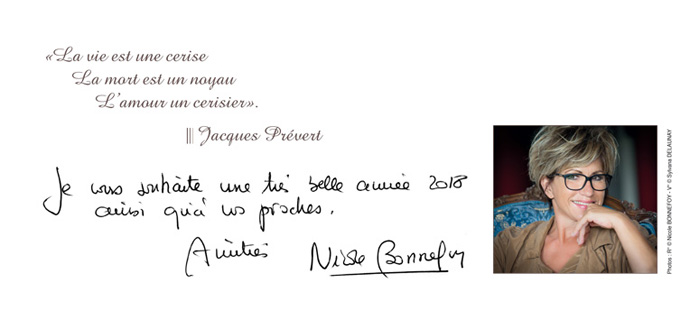 «La vie est une cerise
La mort est un noyau
L'amour un cerisier».
Jacques Prévert
Je vous souhaite une très belle année 2018
ainsi qu'à vos proches.
Amitiés Nicole Bonnefoy
Photos : R° © Nicole BONNEFOY - V° © Sylvana DELAUNAY